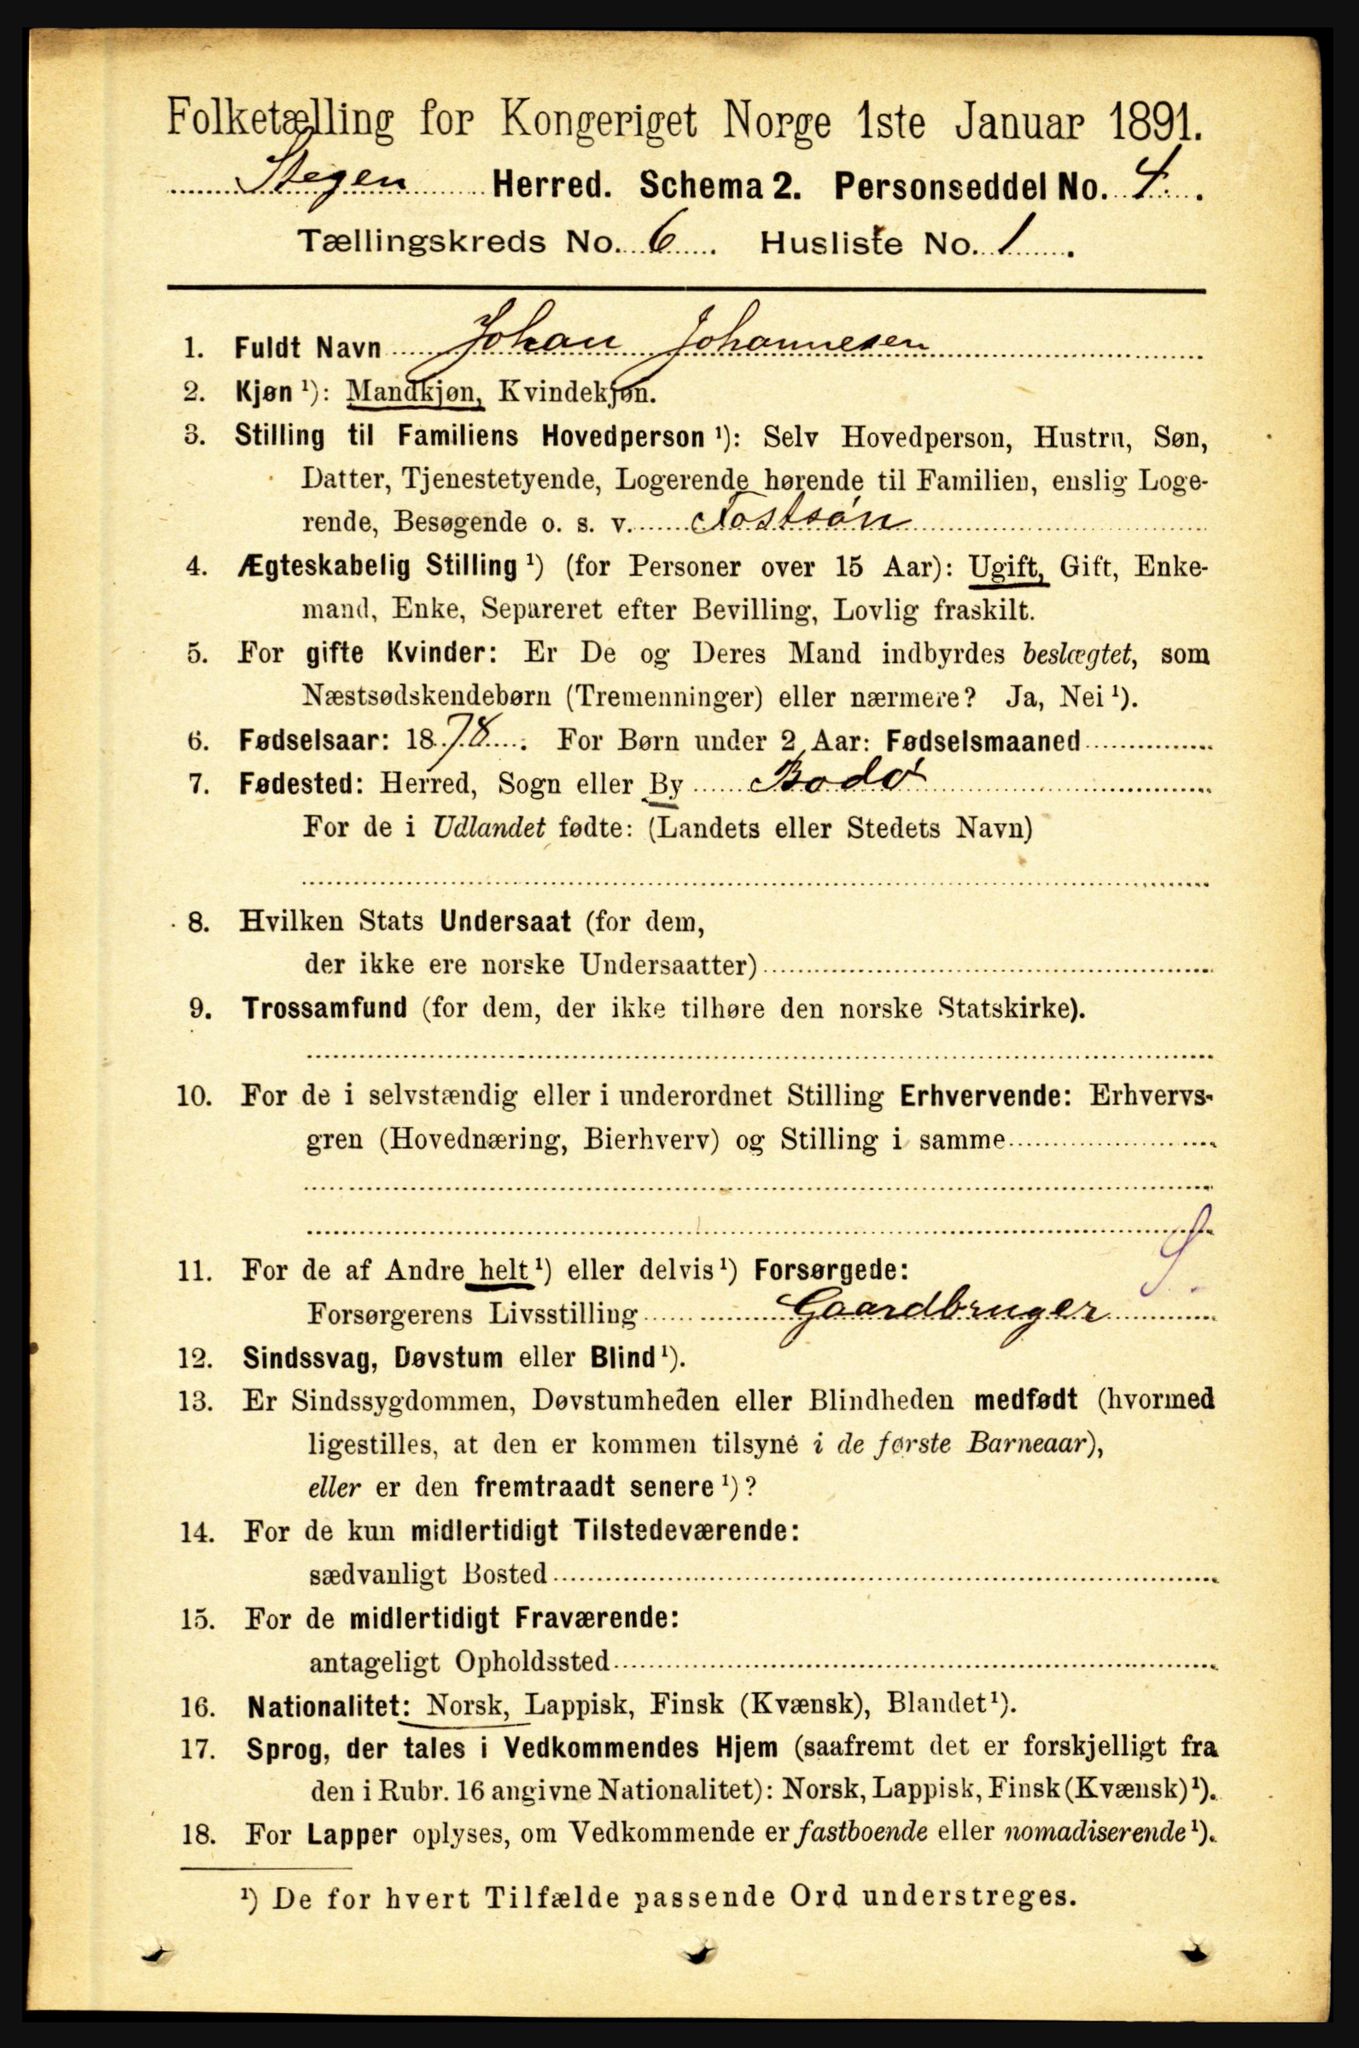 Folketælling for Kongeriget Norge 1ste Januar 1891.
Stegen Herred. Schema 2. Personseddel No. 4.
Tællingskreds No. 6. Husliste No. 1.
1. Fuldt Navn Johan Johannesen
2. Kjøn ¹): Mandkjøn, Kvindekjøn.
3. Stilling til Familiens Hovedperson ¹): Selv Hovedperson, Hustru, Søn,
Datter, Tjenestetyende, Logerende hørende til Familien, enslig Loge-
rende, Besøgende o. s. v. Fostsøn
4. Ægteskabelig Stilling ¹) (for Personer over 15 Aar): Ugift, Gift, Enke-
mand, Enke, Separeret efter Bevilling, Lovlig fraskilt.
5. For gifte Kvinder: Er De og Deres Mand indbyrdes beslægtet, som
Næstsødskendebørn (Tremenninger) eller nærmere? Ja, Nei ¹).
6. Fødselsaar: 1878. For Børn under 2 Aar: Fødselsmaaned
7. Fødested: Herred, Sogn eller By Bodø
For de i Udlandet fødte: (Landets eller Stedets Navn)
8. Hvilken Stats Undersaat (for dem,
der ikke ere norske Undersaatter)
9. Trossamfund (for dem, der ikke tilhøre den norske Statskirke).
10. For de i selvstændig eller i underordnet Stilling Erhvervende: Erhvervs-
gren (Hovednæring, Bierhverv) og Stilling i samme
S.
11. For de af Andre helt ¹) eller delvis ¹) Forsørgede:
Forsørgerens Livsstilling Gaardbruger
12. Sindssvag, Døvstum eller Blind ¹).
13. Er Sindssygdommen, Døvstumheden eller Blindheden medfødt (hvormed
ligestilles, at den er kommen tilsyne i de første Barneaar),
eller er den fremtraadt senere ¹)?
14. For de kun midlertidigt Tilstedeværende:
sædvanligt Bosted
15. For de midlertidigt Fraværende:
antageligt Opholdssted
16. Nationalitet: Norsk, Lappisk, Finsk (Kvænsk), Blandet ¹).
17. Sprog, der tales i Vedkommendes Hjem (saafremt det er forskjelligt fra
den i Rubr. 16 angivne Nationalitet): Norsk, Lappisk, Finsk (Kvænsk) ¹).
18. For Lapper oplyses, om Vedkommende er fastboende eller nomadiserende ¹).
¹) De for hvert Tilfælde passende Ord understreges.